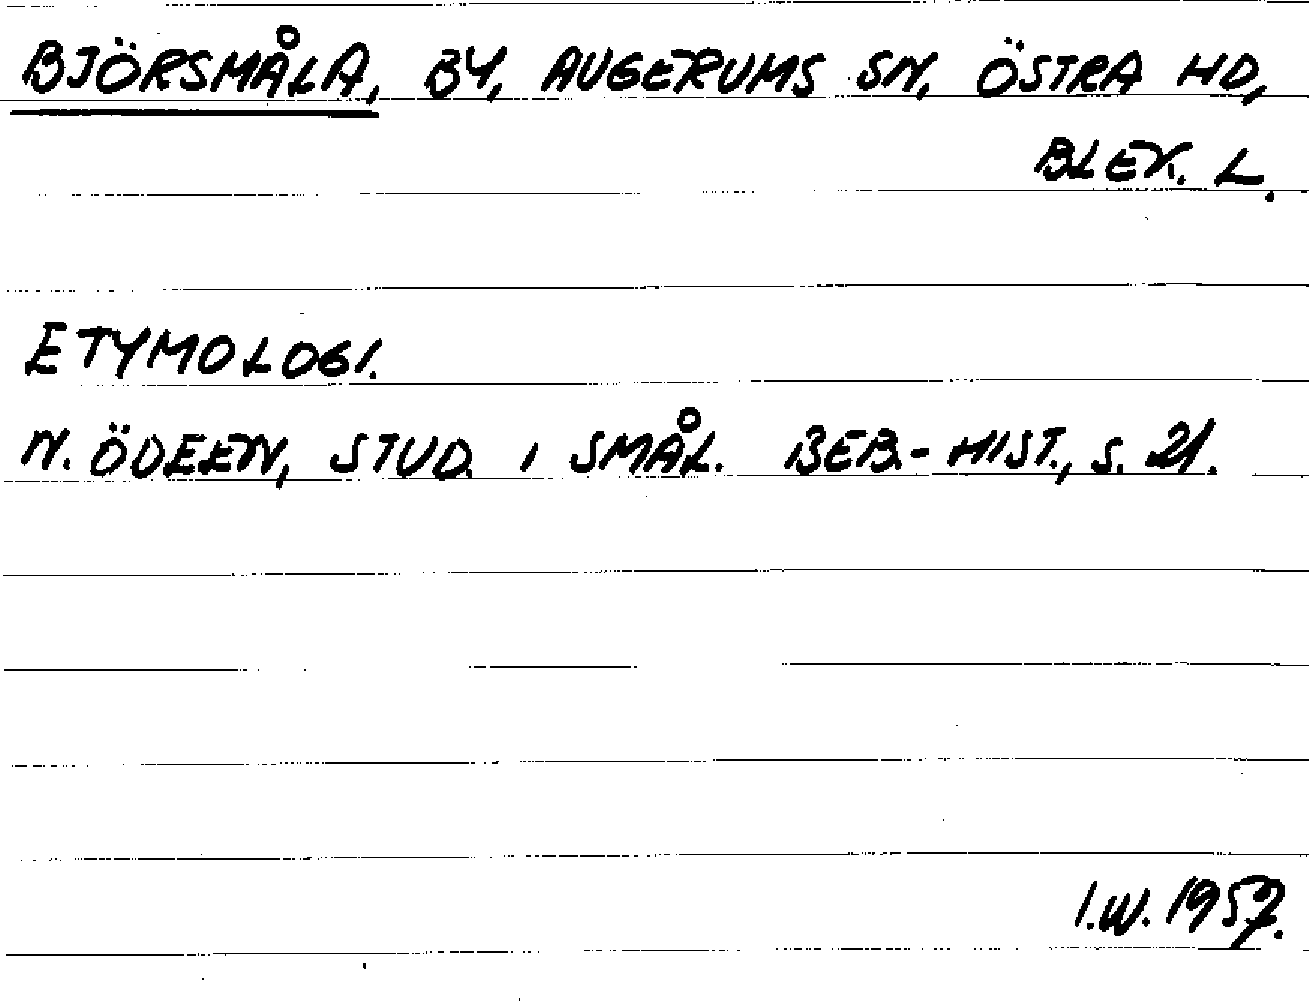 BJÖRSMÅLA, BY, AUGERUMS SN, ÖSTRA HD,
BLEK. L.
ETYMOLOGI.
N. ÖDEEN, STUD. I SMÅL. BEB.-HIST., S. 21.
I.W. 1957.